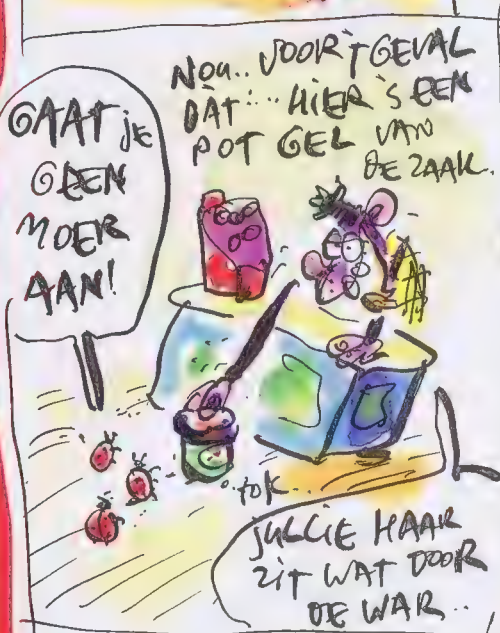 GAAT je
GEEN
MOER
AAN!
NOU.. VOOR 'T GEVAL
DAT... HIER 'S EEN
POT GEL VAN
DE ZAAK.
..tok..
JULLIE HAAR
ZIT WAT DOOR
DE WAR..